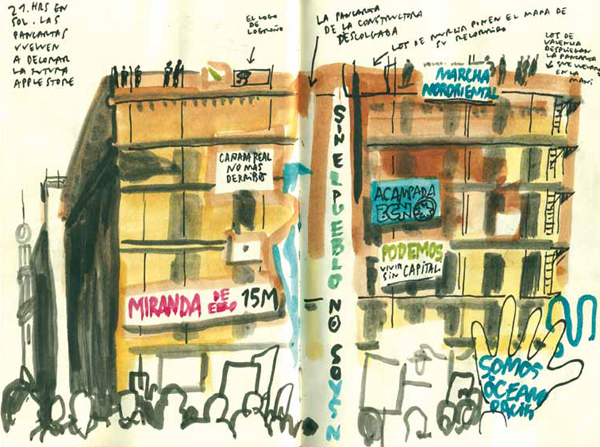 21. HRS EN
SOL. LAS
PANCARTAS
VUELVEN
A DECORAR
LA FUTURA
APPLE STORE
EL LOGO
DE
LOGROÑO
LA PANCARTA
DE LA CONSTRUCTORA
DESCOLGADA
LOS DE MURCIA PONEN EL MAPA DE
SU RECORRIDO
LOS DE
VALENCIA
DESPLIEGAN
LA PANCARTA
QUE LLEVABAN
EN LA
MANI
MARCHA
NORORIENTAL
CAÑADA REAL
NO MÁS
DERRIBOS
ACAMPADA
BCN
PODEMOS
VIVIR
SIN CAPITAL
MIRANDA DE
EBRO 15M
SIN EL PUEBLO NO SOIS N
SOMOS
OCEAN